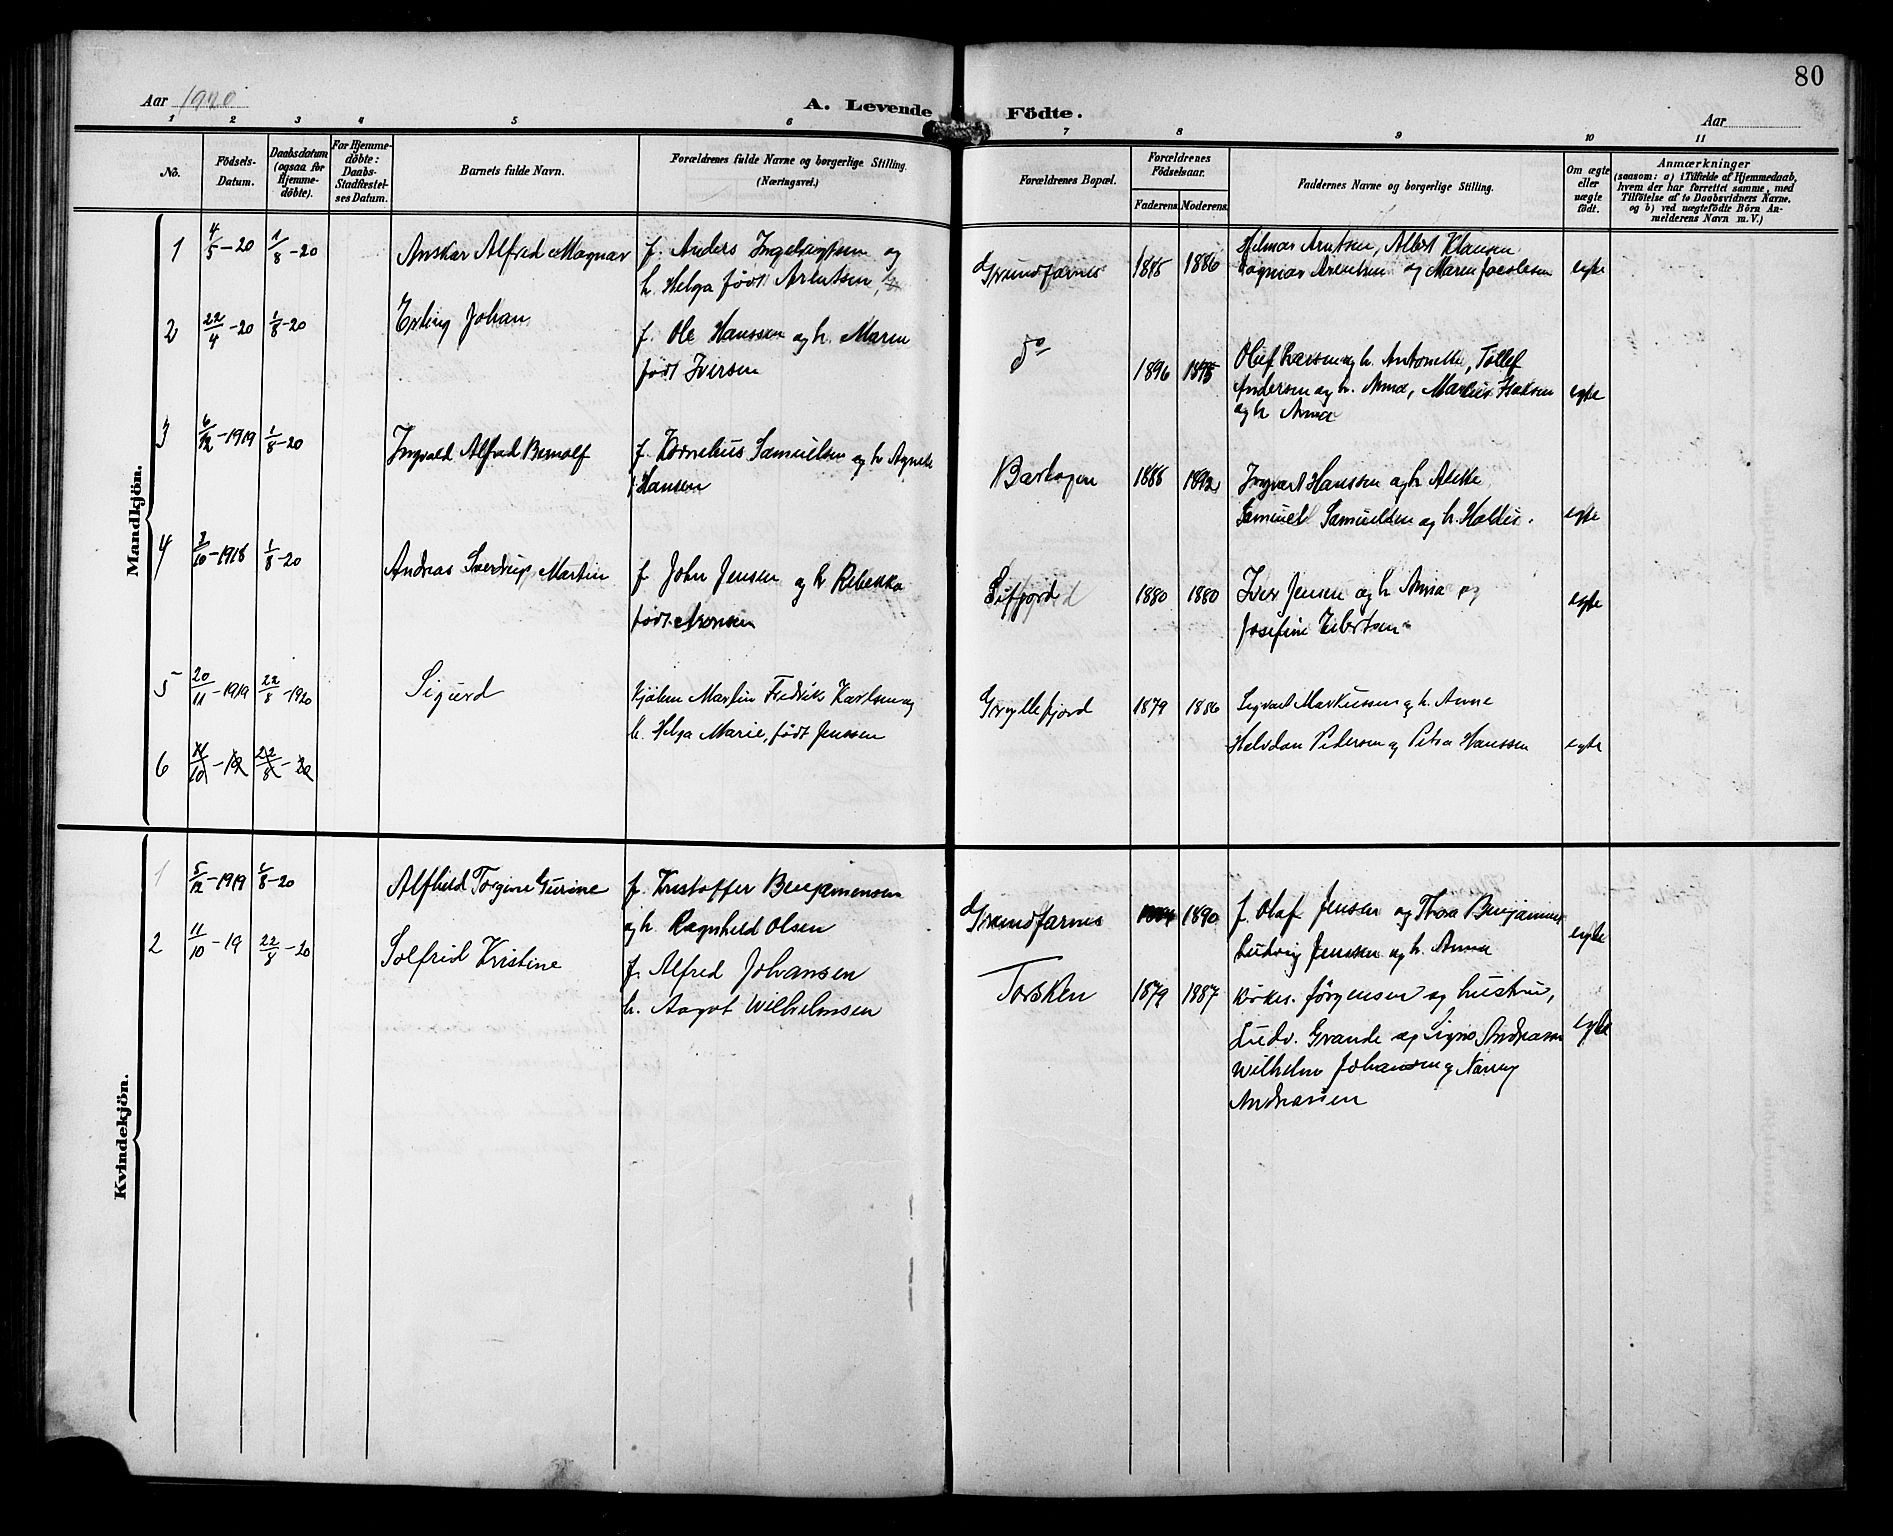 80
Aar 1920
A. Levende Födte.
Aar
1 2 3 4 5 6 7 8 9 10 11
No.
Födsels-Datum.
Daabsdatum (ogsaa for Hjemme-döbte).
For Hjemme-döbte: Daabs-Stadfæstel-ses Datum.
Barnets fulde Navn.
Forældrenes fulde Navne og borgerlige Stilling. (Næringsvei.)
Forældrenes Bopæl.
Forældrenes Födselsaar.
Faderens. Moderens.
Faddernes Navne og borgerlige Stilling.
Om ægte eller uægte födt.
Anmærkninger
(saasom: a) i Tilfælde af Hjemmedaab, hvem der har forrettet samme, med Tilföielse af to Daabsvidners Navne, og b) ved uægtefödte Börn Anmelderens Navn m. V.)
Mandkjön.
1 4/5-20 1/8-20 Anskar Alfred Magnar f. Anders Ingebrigtsen og
h. Helga født Arntsen, Grundfarnes 1885 1886 Hilmar Arntsen, Albert Klausen
Dagmar Arentsen og Maren Jacobsen egte
2 22/4-20 1/8-20 Erling Johan f. Ole Hanssen og h. Maren
født Iversen do 1896 1895 Oluf Larsen og h. Antonette, Tollef
Andersen og h. Anna, Marius Isaksen
og h Anna egte
3 6/12-1919 1/8-20 Ingvald Alfred Bernolf f. Kornelius Samuelsen og h Agnete
f Hansen Barhogen 1888 1892 Ingvart Hanssen og h Alette
Samuel Samuelsen og h. Haldis. egte
4 2/10-1918 1/8-20 Andreas Sverdrup Martin f John Jensen og h Rebekka
født Aronsen Sifjord 1880 1880 Iver Jensen og h Anna og
Josefine Eibertsen egte
5 20/11-1919 22/8-1920 Sigurd kjøbm Martin Fredrik Karlsen og
h. Helga Marie, født Jenssen Gryllefjord 1879 1886 Sigvart Markussen og h. Anne
Halvdan Pedersen og Petra Hanssen egte
6 11/10-19 22/8-20
Kvindekjön.
1 5/12-1919 1/8-20 Alfhild Torgine Gurine f. Kristoffer Benjaminsen
og h. Ragnhild Olsen Grundfarnes 1890 f. Olaf Jensen og Thora Benjamins
Ludvig Jenssen og h. Anna egte
2 11/10-19 22/8-20 Solfrid Kristine f. Alfred Johansen
h. Aagot Wilhelmsen Torsken 1879 1887 Kirkes. Jørgensen og hustru,
Ludv. Grande og Signe Andreassen
Wilhelm Johansen og Nanny
Andreassen egte